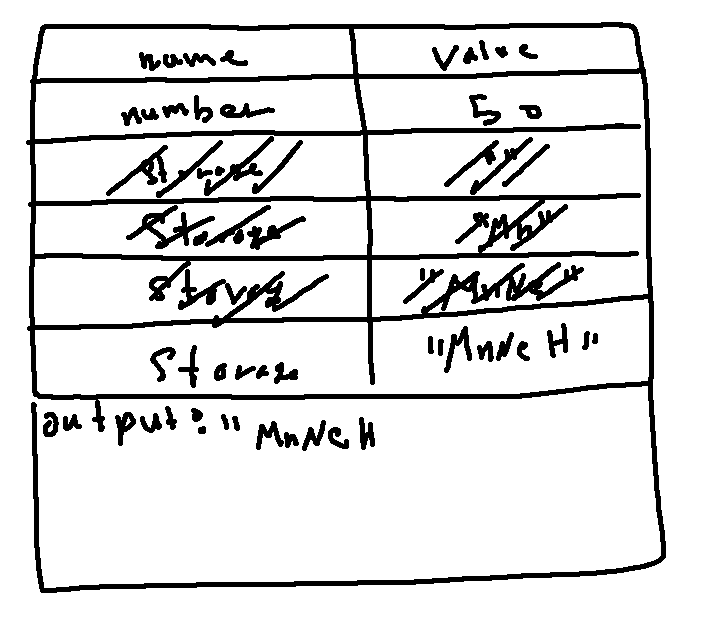 name value
number 50
Storage ""
Storage "Mn"
Storag "MnNe"
Storage "MnNeH"
output: "MnNeH